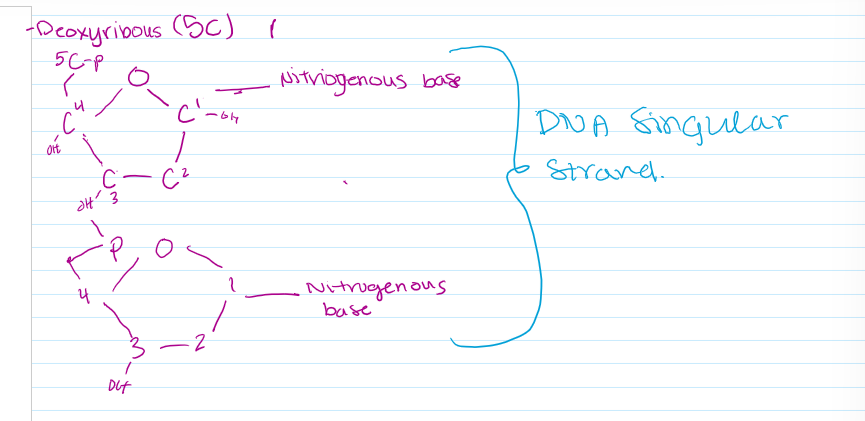 -Deoxyribous (5C)
5C-P
O
Nitriogenous base
C4
C1-OH
DNA Singular
OH
Strand.
C3 C2
OH
P O
4 1
Nitrogenous
base
3 2
OH